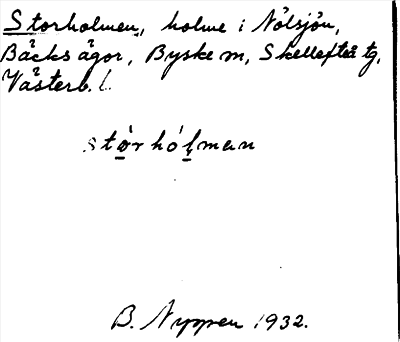 Storholmen, holme i Nölsjön,
Bäcks ägor, Byske sn, Skellefteå tg,
Västerb. l.
stòrhólman
B. Nyppen 1932.